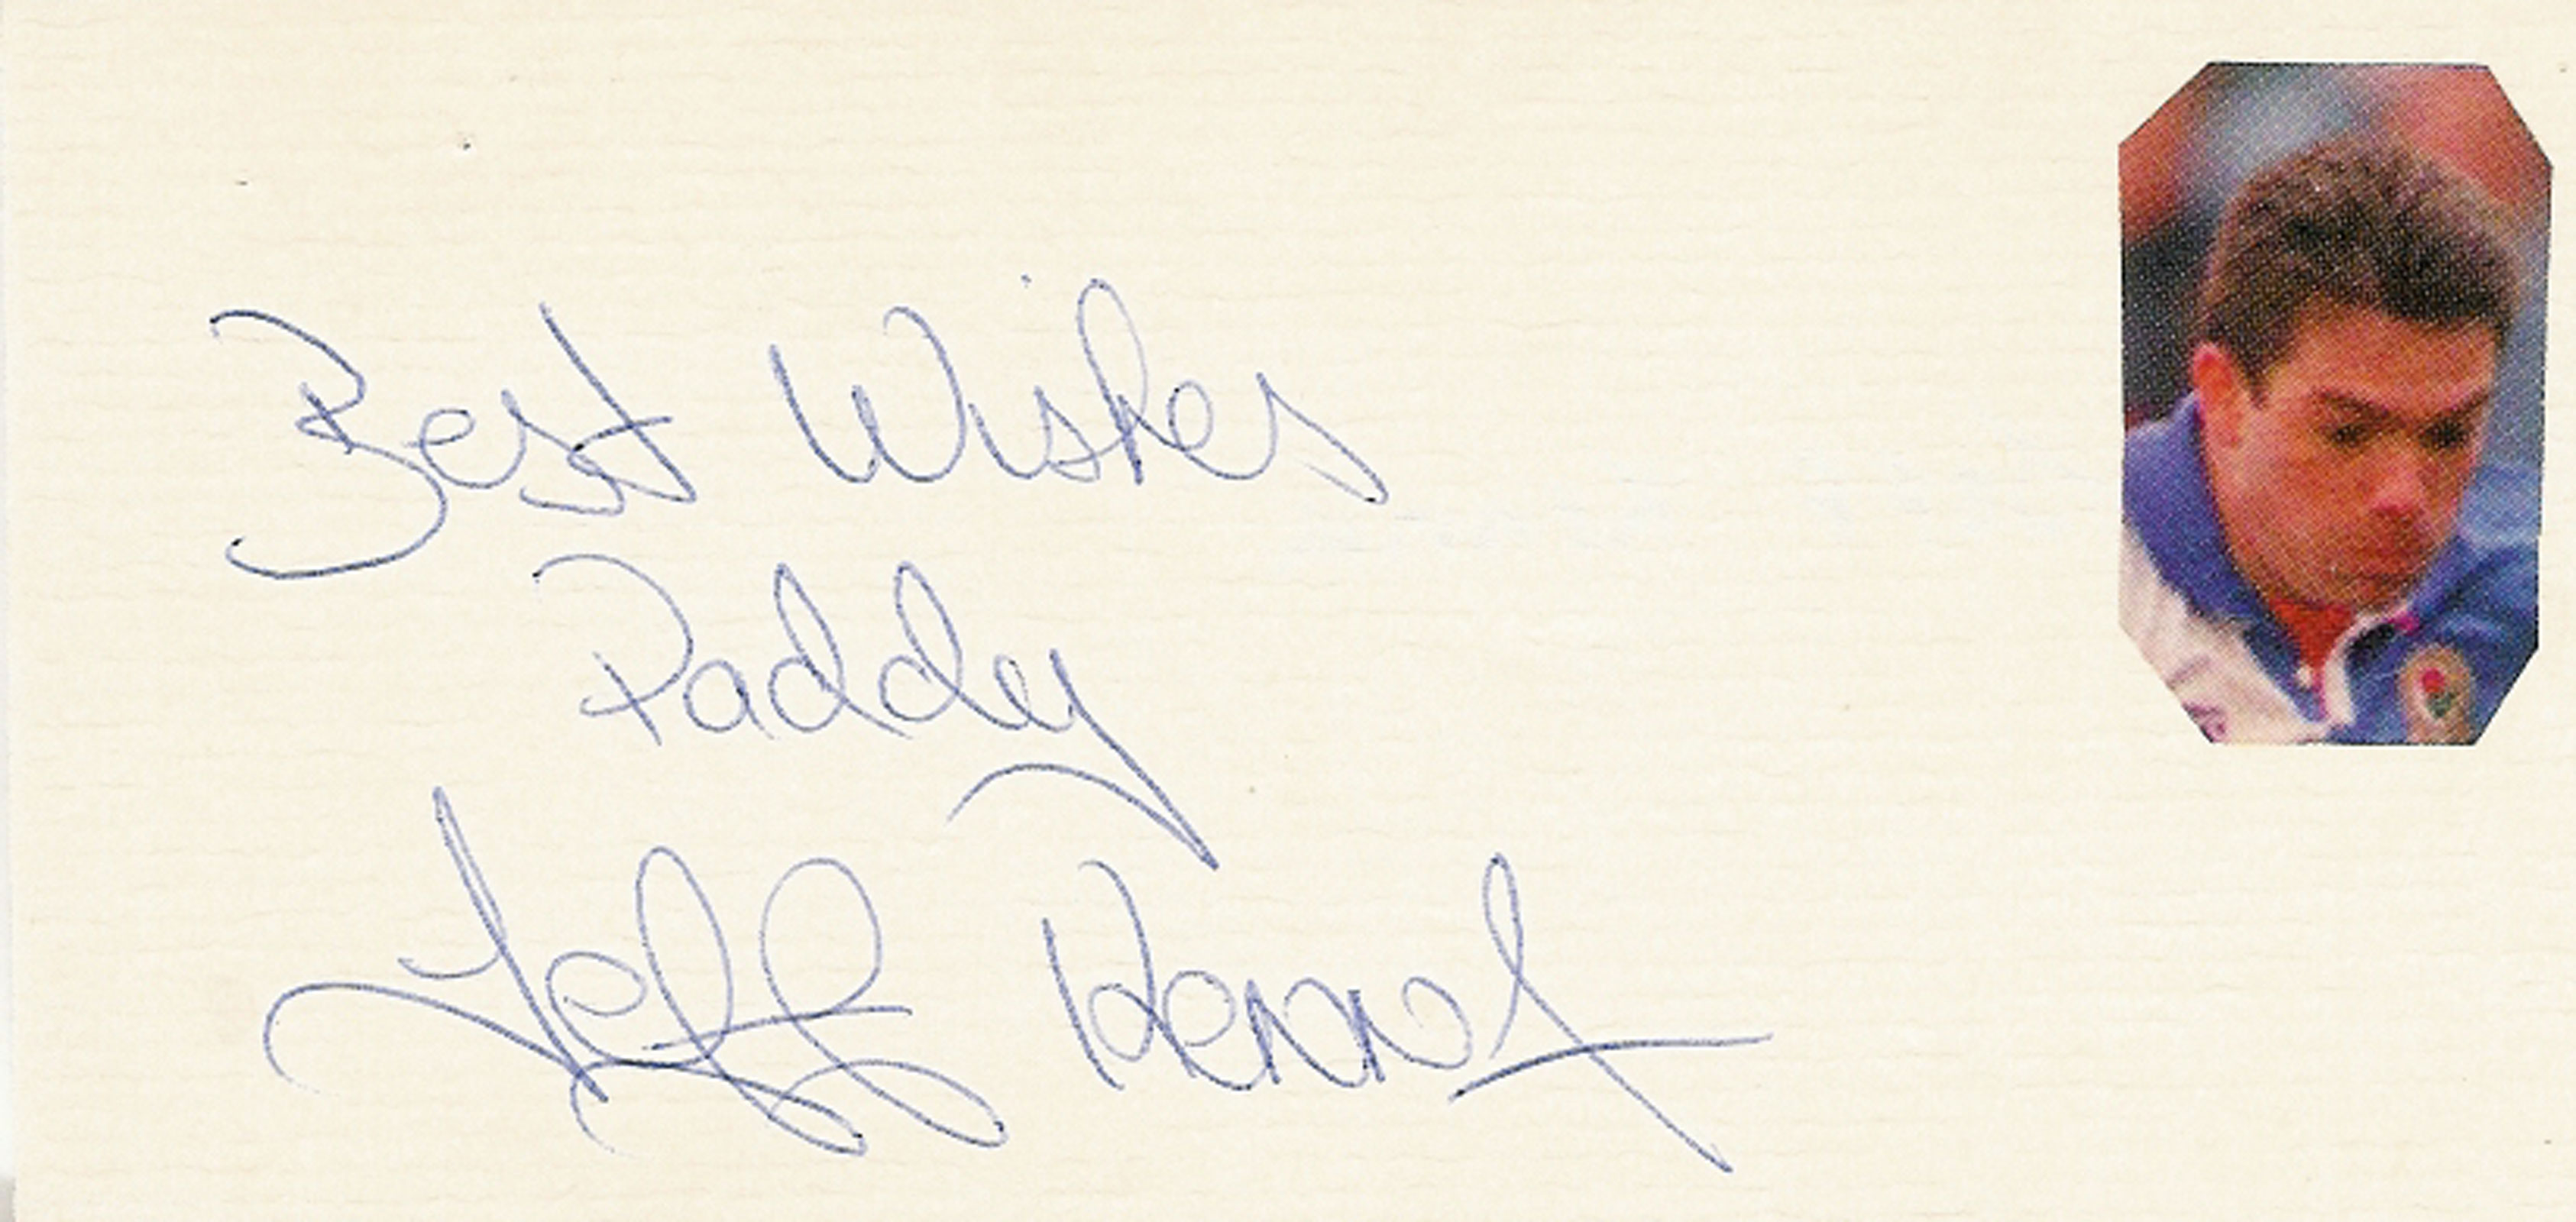 Best Wishes
Paddy
Jeff Kenna